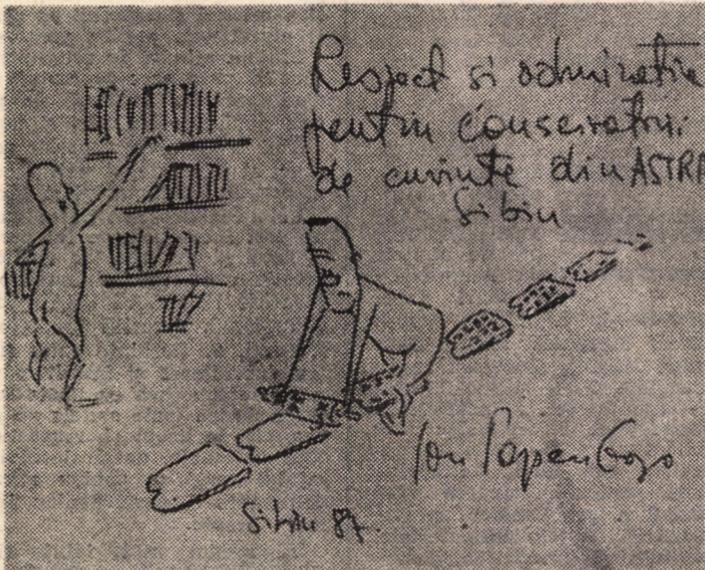 Respect si admiratie
pentru conservatorii
de cuvinte din ASTRA
Sibiu
Ion Popescu Gopo
Sibiu 87